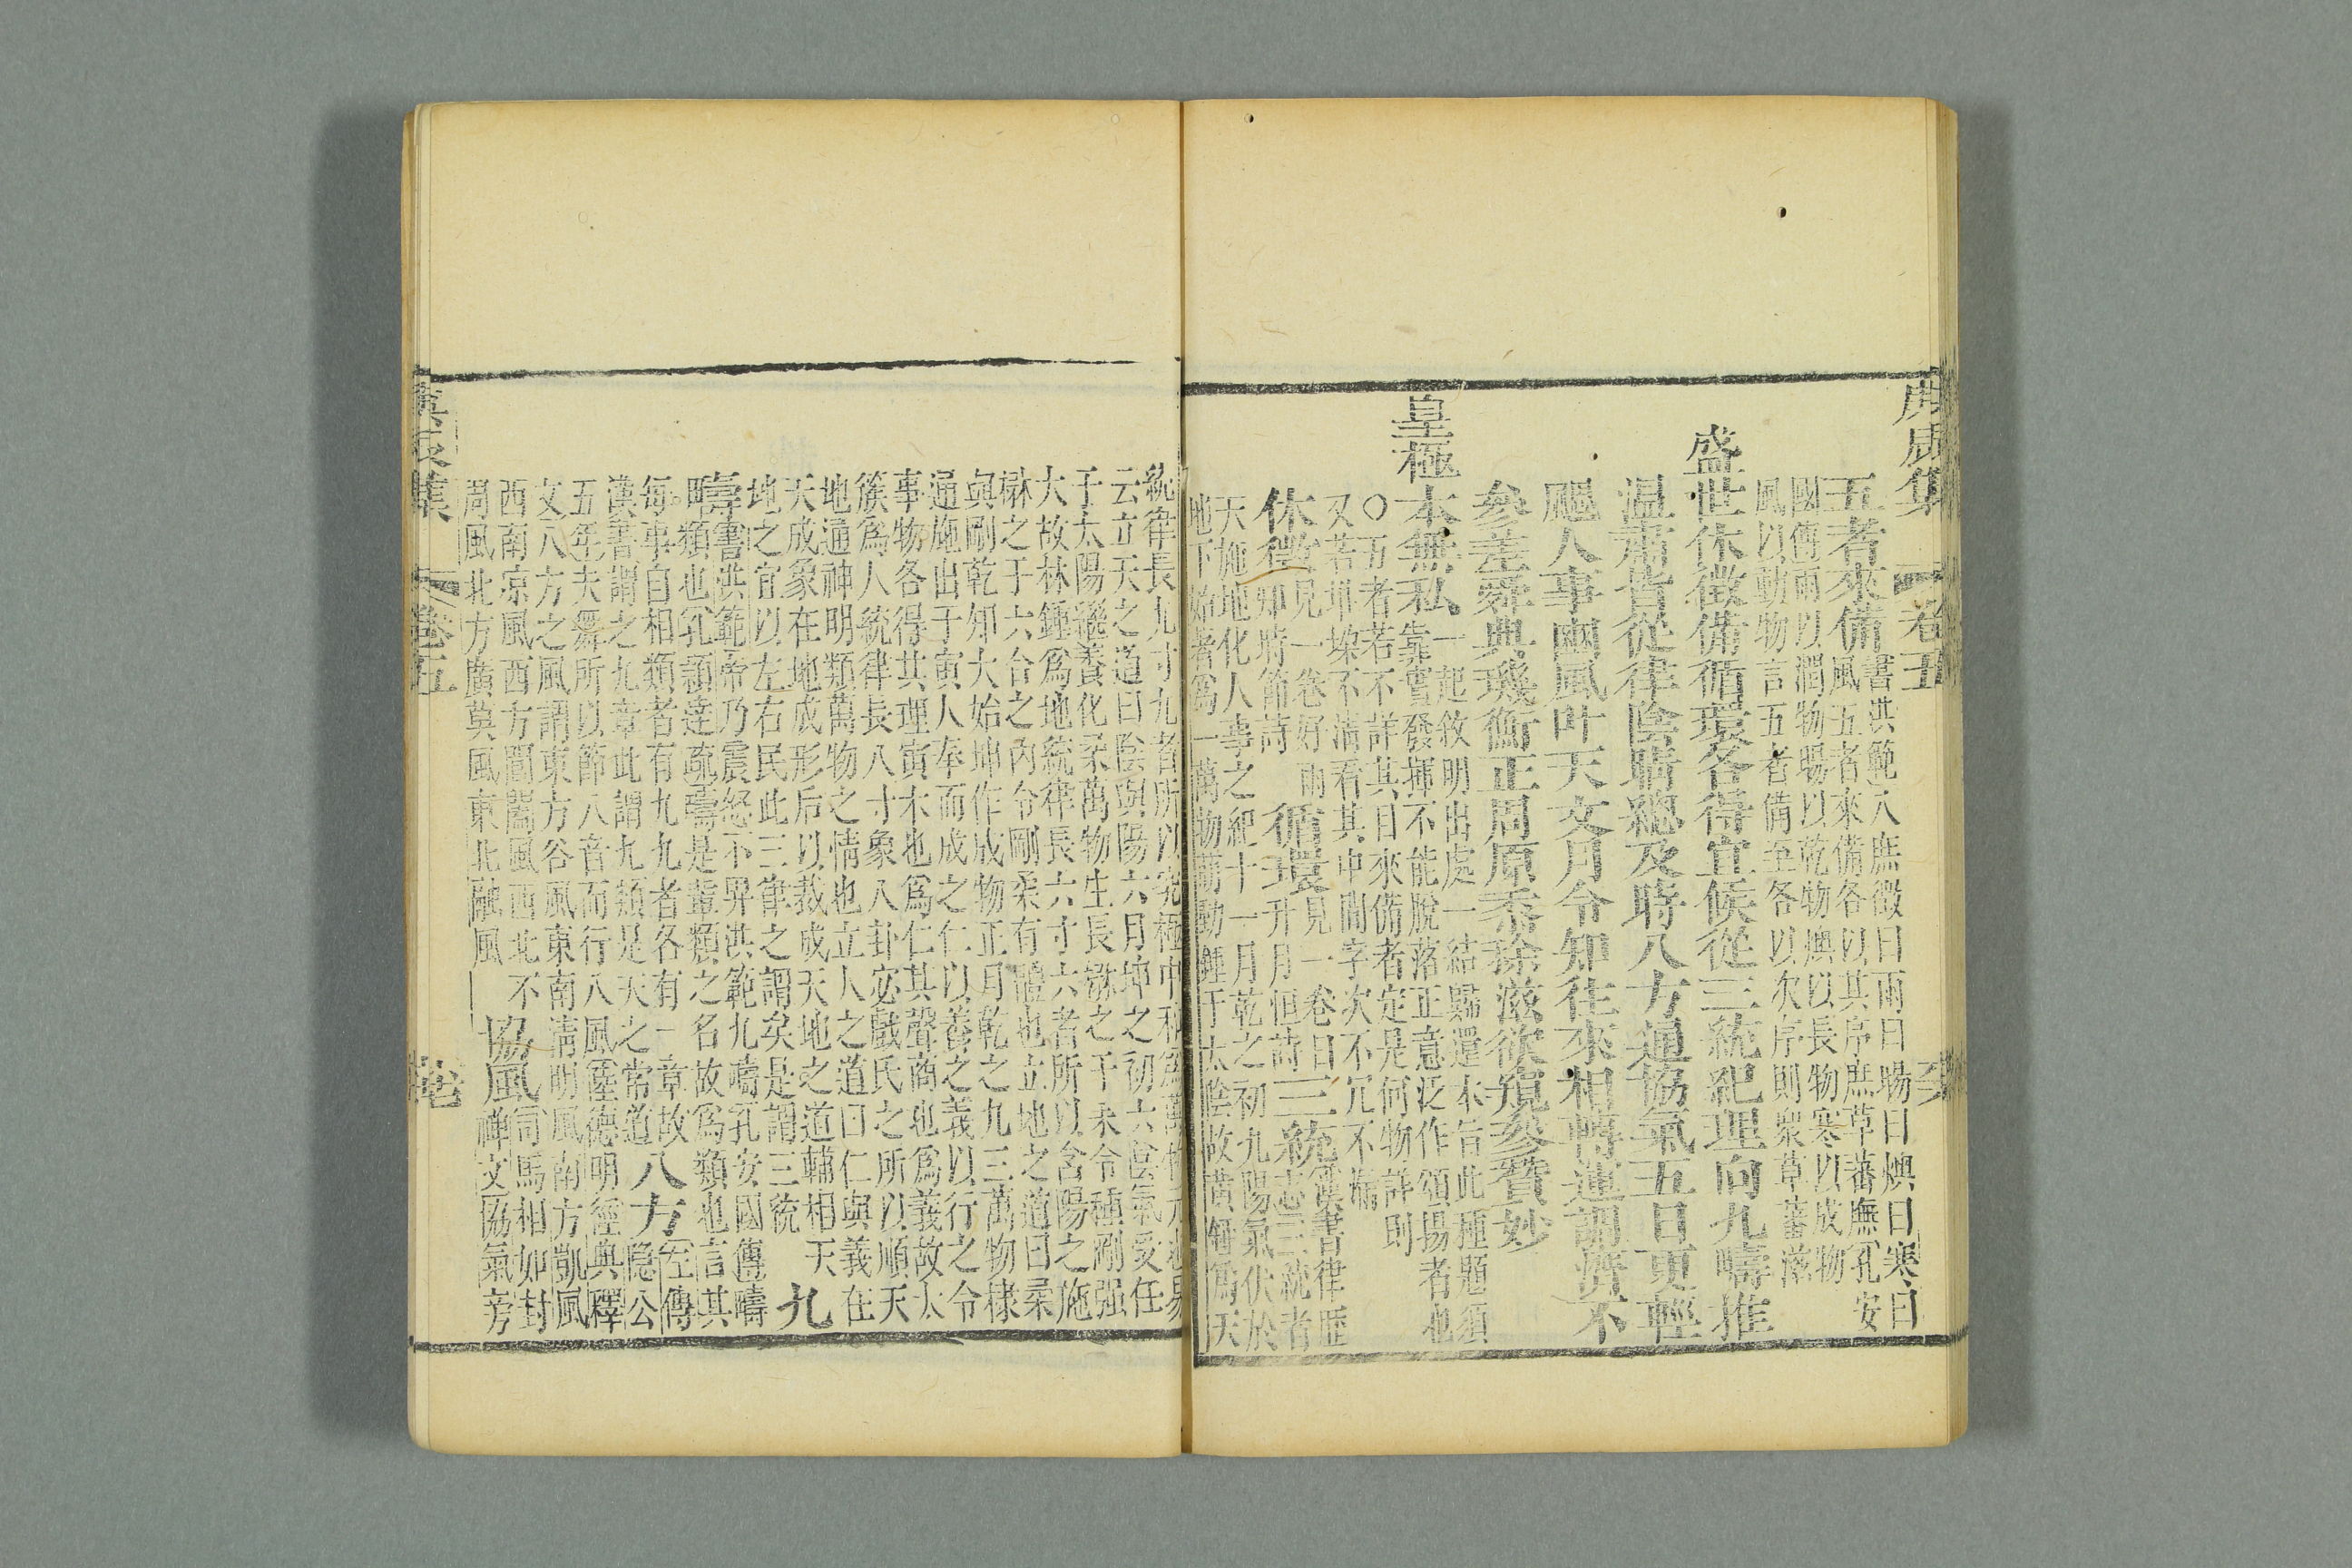 庚辰集 卷五
五者來備 書洪範八庶徵曰雨曰暘曰燠曰寒曰
風五者來備各以其序庶草蕃廡孔安
國傳雨以潤物暘以乾物燠以長物寒以成物
風以動物言五者備至各以次序則衆草蕃滋
盛世休徵備循環各得宜候從三統紀理向九疇推
溫肅皆從律陰晴總及時八方通協氣五日更輕
颸人事豳風叶天文月令知往來相轉運調燮不
參差舜典璣衡正周原黍稌滋欲窺參贊妙
皇極本無私
一起敘明出處一結歸還本旨此種題須
靠實發揮不能脫落正意泛作頌揚者也
〇五者若不詳其目來備者定是何物詳則
又若堆垛不清看其中間字次不冗不漏
休徵見一卷好雨
知時節詩
循環見一卷日
升月恒詩
三統漢書律歷
志三統者
天施地化人事之紀十一月乾之初九陽氣伏於
地下始著爲一萬物萌動鍾于太陰故黃鍾爲天
統律長九寸九者所以究極中和爲萬物元也易
云立天之道曰陰與陽六月坤之初六陰氣受任
于太陽繼養化柔萬物生長楙之于未令種剛强
大故林鍾爲地統律長六寸六者所以含陽之施
楙之于六合之內令剛柔有體也立地之道曰柔
與剛乾知大始坤作成物正月乾之九三萬物棣
通施出于寅人奉而成之仁以養之義以行之令
事物各得其理寅木也爲仁其聲商也爲義故太
簇爲人統律長八寸象八卦宓戲氏之所以順天
地通神明類萬物之情也立人之道曰仁與義在
天成象在地成形后以裁成天地之道輔相天
地之宜以左右民此三律之謂矣是謂三統
九
疇書洪範帝乃震怒不畀洪範九疇孔安國傳疇
類也孔穎達疏疇是輩類之名故爲類也言其
每事自相類者有九九者各有一章故
漢書謂之九章此謂九類是天之常道
八方左傳
隱公
五年夫舞所以節八音而行八風陸德明經典釋
文八方之風謂東方谷風東南淸明風南方凱風
西南凉風西方閶闔風西北不
周風北方廣莫風東北融風
協風司馬相如封
禪文協氣旁
庚辰集 卷五